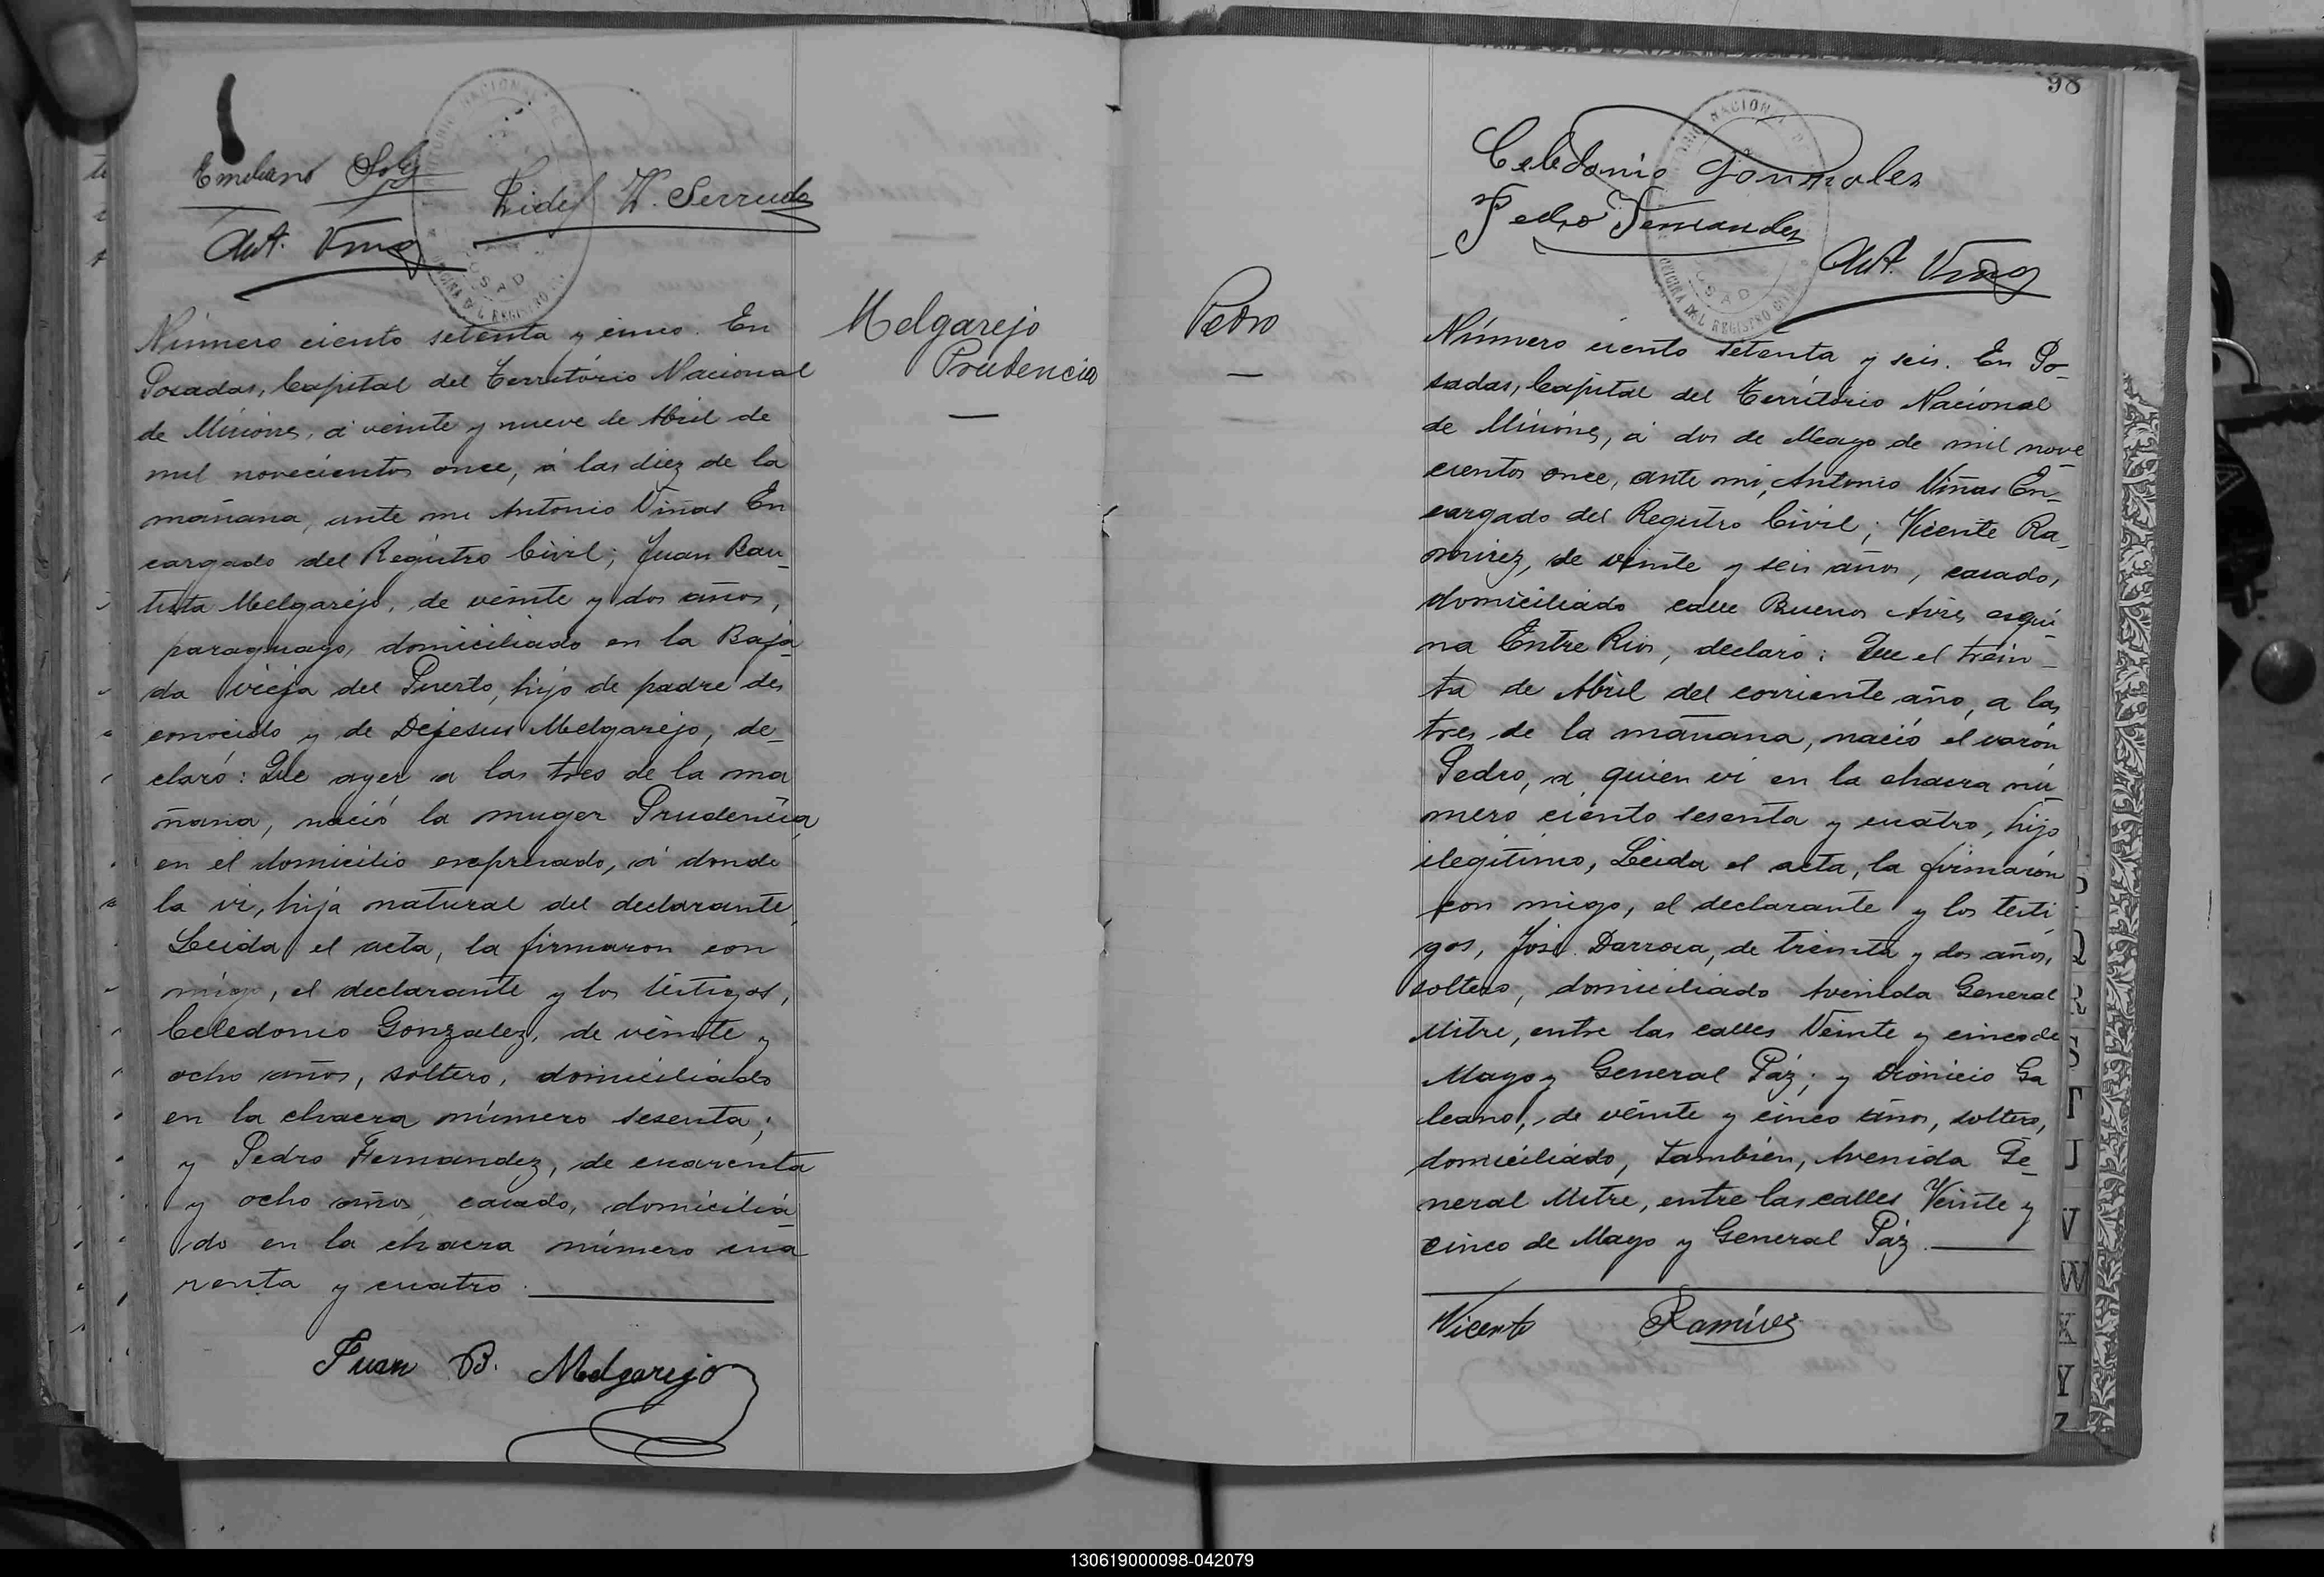 Emiliano
Fidel V. Serrudo
Ant. Viñas
Número ciento setenta y cinco. En
Posadas, Capital del Territorio Nacional
de Misiones, á veinte y nueve de Abril de
mil novecientos once, á las diez de la
mañana, ante mi Antonio Viñas En
cargado del Registro Civil; Juan Bau_
tista Melgarejo, de veinte y dos años,
paraguayo, domiciliado en la Baja_
da vieja del Puerto, hijo de padre des
conocido y de Dejesus Melgarejo, de_
claró: Que ayer a las tres de la ma
ñana, nació la muger Prudencia
en el domicilio expresado, á donde
la vi, hija natural del declarante.
Leida el acta, la firmaron con
migo, el declarante y los testigos,
Celedonio Gonzalez, de veinte y
ocho años, soltero, domiciliado
en la chacra número sesenta;
y Pedro Fernandez, de cuarenta
y ocho años, casado, domicilia_
do en la chacra número cua
renta y cuatro.
Juan B. Melgarejo
Melgarejo
Prudencia
Pedro
98
Celedonio Gonzales
Pedro Fernandez
Ant. Viñas
Número ciento setenta y seis. En Po_
sadas, Capital del Territorio Nacional
de Misiones, á dos de Mayo de mil nove_
cientos once, ante mi, Antonio Viñas En_
cargado del Registro Civil; Vicente Ra_
mirez, de veinte y seis años, casado,
domiciliado calle Buenos Aires esqui_
na Entre Rios, declaró: Que el trein_
ta de Abril del corriente año, a las
tres de la mañana, nació el varón
Pedro, a quien vi en la chacra nú_
mero ciento sesenta y cuatro, hijo
ilegitimo, Leida el acta, la firmarón
con migo, el declarante y los testi
gos, José Darrosa, de treinta y dos años,
soltero, domiciliado Avenida General
Mitre, entre las calles Veinte y cinco de
Mayo y General Páz; y Dionicio Ga
leano, de veinte y cinco años, soltero,
domiciliado, también, Avenida Ge_
neral Mitre, entre las calles Veinte y
cinco de Mayo y General Páz.
Vicente Ramírez
Q
R
S
T
J
V
W
X
Y
Z
130619000098-042079